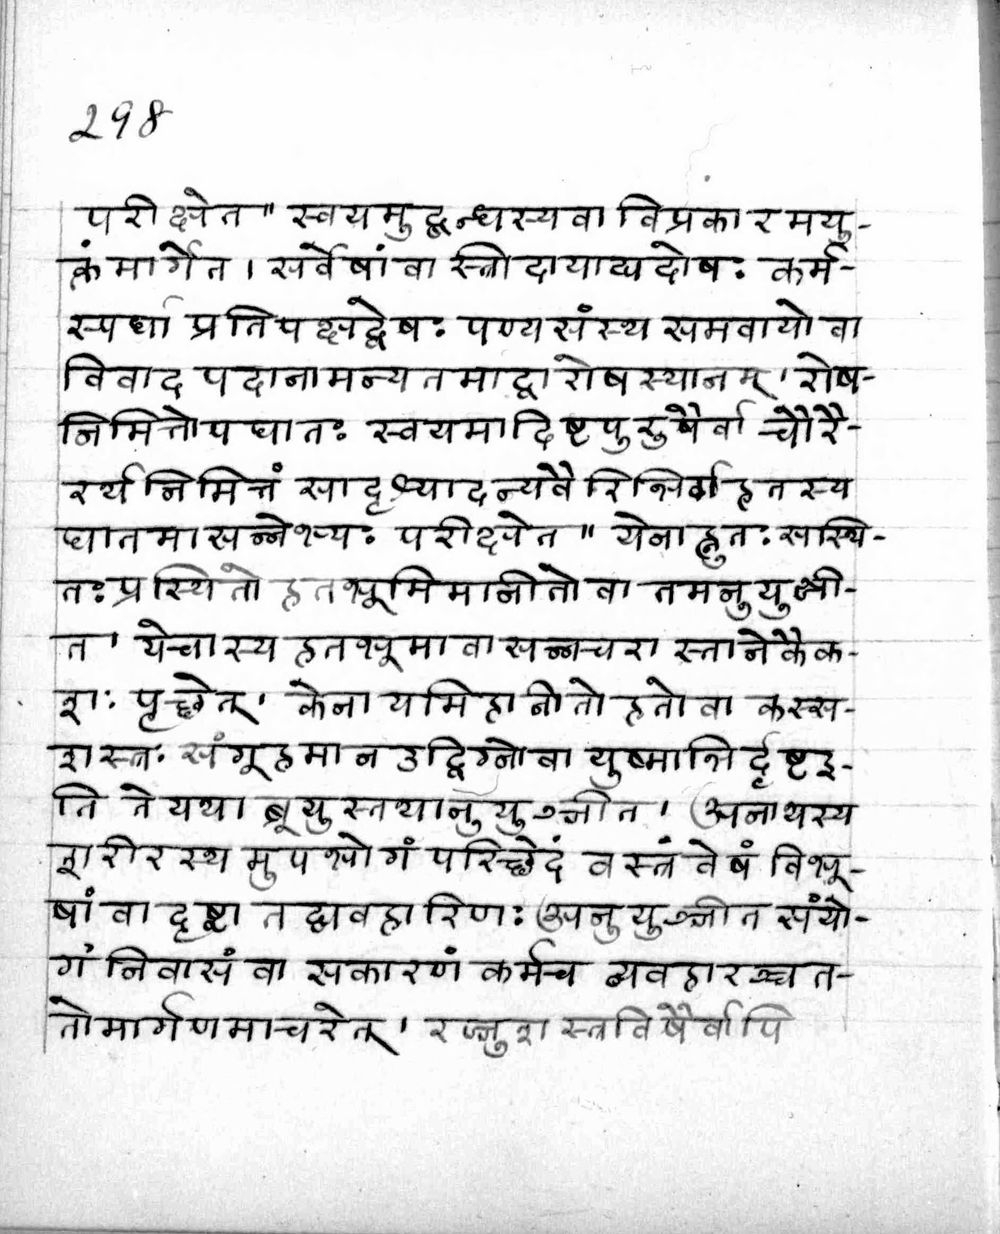 298
परीक्षेत " स्वयमुद्बन्धस्य वा विप्रकारमयु-
क्तं मार्गेत । सर्वेषां वा स्त्रीदायाद्यदोषः कर्म-
स्पर्धा प्रतिपक्षद्वेषः पण्यसंस्थसमवायो वा
विवादपदानामन्यतमाद्वा रोषस्थानम् । रोष-
निमित्तोपघातः स्वयमादिष्टपुरुषैर्वा चोरै-
रर्थनिमित्तं सादृश्यादन्यवैरिभिर्वा हतस्य
घातमासन्नेभ्यः परीक्षेत " येनाहूतः सस्थि-
तः प्रस्थितो हतभूमिमानीतो वा तमनुयुञ्जी-
त । ये चास्य हतभूमावासन्नचरास्तानेकैक-
शः पृच्छेत् । केनायमिहानीतो हतो वा कस्स-
शस्त्रः संगूहमान उद्विग्नो वा युष्माभिर्दृष्ट इ-
ति ते यथा ब्रूयुस्तथानुयुञ्जीत । अनाथस्य
शरीरस्थमुपभोगं परिच्छेदं वस्त्रं वेषं विभू-
षां वा दृष्टा तद्व्यवहारिणः अनुयुञ्जीत संयो-
गं निवासं वा सकारणं कर्म च व्यवहारञ्च त-
तो मार्गणमाचरेत् । रज्जुशस्त्रविषैर्वापि